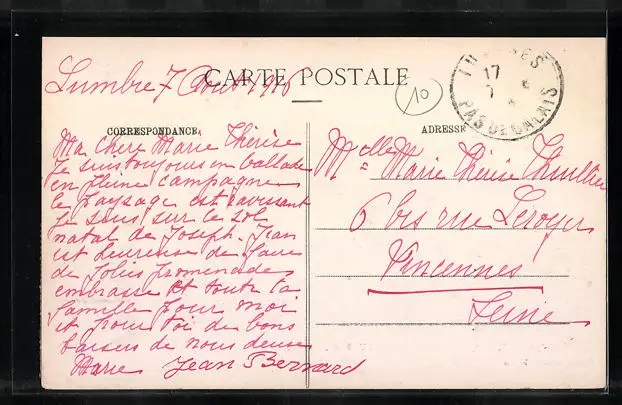 CARTE POSTALE
Lumbre 7 Aout 1916
10
17
PAS DE CALAIS
CORRESPONDANCE
ADRESSE
Ma chere Marie Thérèse
Je suis toujours en ballade
en pleine campagne
le paysage est ravissant
Je suis sur le sol
natal de Joseph. Jean
est heureuse de faire
de jolies promenade
embrasse Pt toute la
famille pour moi
et pour toi de bons
baisers de nous deux
Marie Jean Bernard
Melle Marie Thérèse Thuillier
6 bis rue Leroyer
Vincennes
Seine